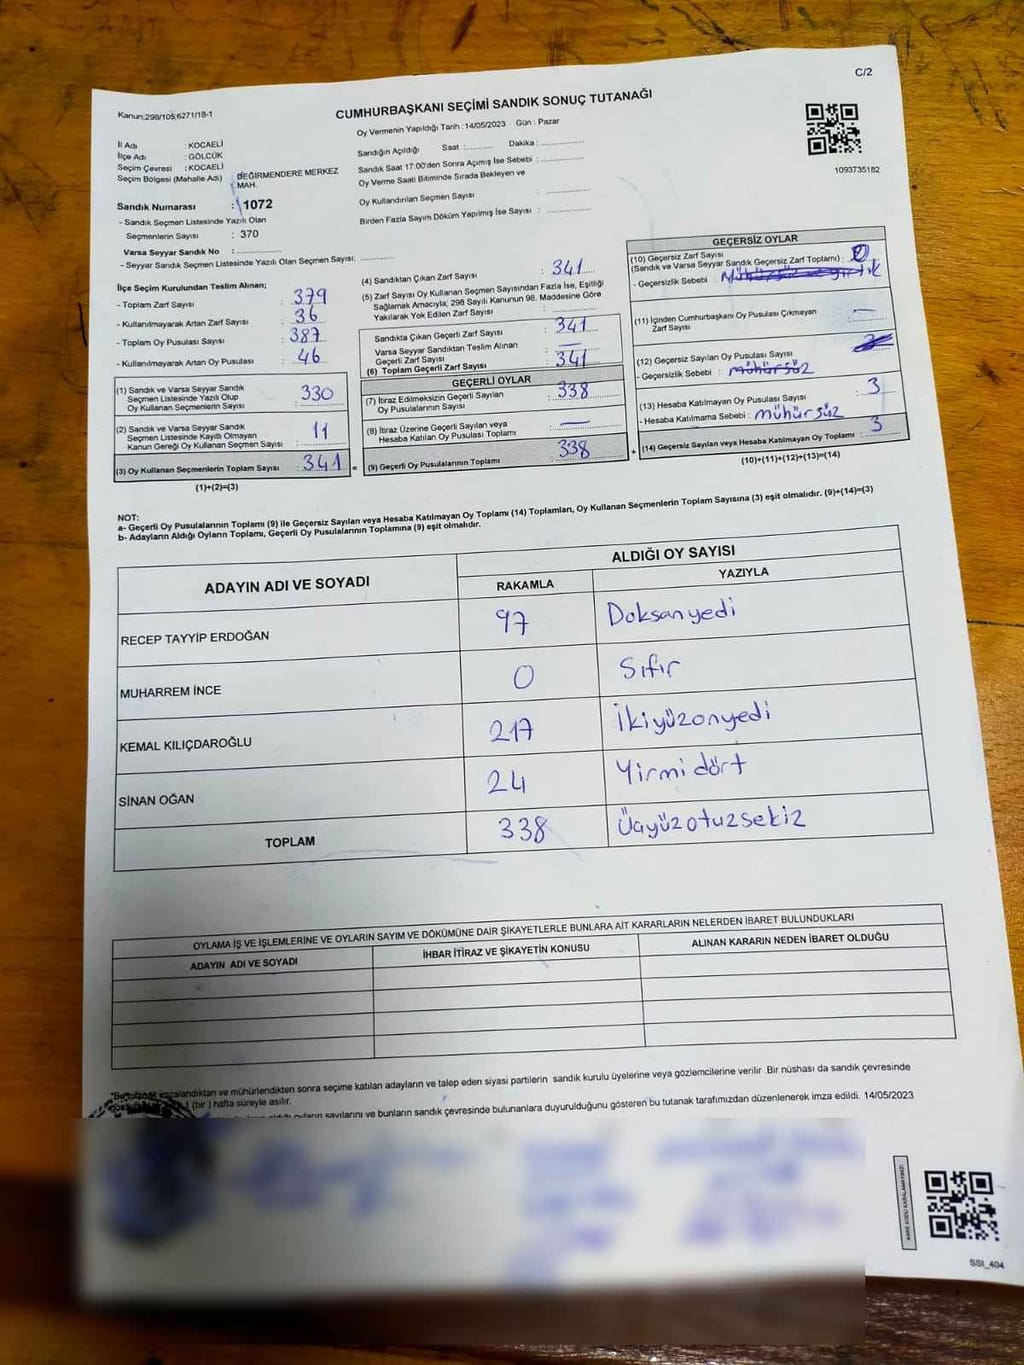 C/2
Kanun;298/105;6271/18-1
CUMHURBAŞKANI SEÇİMİ SANDIK SONUÇ TUTANAĞI
İl Adı : KOCAELİ
İlçe Adı : GÖLCÜK
Seçim Çevresi : KOCAELİ
Seçim Bölgesi (Mahalle Adı) : DEĞİRMENDERE MERKEZ
MAH.
Sandık Numarası : 1072
- Sandık Seçmen Listesinde Yazılı Olan
Seçmenlerin Sayısı : 370
Varsa Seyyar Sandık No :
- Seyyar Sandık Seçmen Listesinde Yazılı Olan Seçmen Sayısı:
Oy Vermenin Yapıldığı Tarih :14/05/2023 Gün : Pazar
Sandığın Açıldığı Saat : Dakika :
Sandık Saat 17:00'den Sonra Açımış İse Sebebi :
Oy Verme Saati Bitiminde Sırada Bekleyen ve
Oy Kullandırılan Seçmen Sayısı :
Birden Fazla Sayım Döküm Yapılmış İse Sayısı :
1093735182
İlçe Seçim Kurulundan Teslim Alınan;
- Toplam Zarf Sayısı : 379
- Kullanılmayarak Artan Zarf Sayısı : 36
- Toplam Oy Pusulası Sayısı : 387
- Kullanılmayarak Artan Oy Pusulası : 46
(1) Sandık ve Varsa Seyyar Sandık
Seçmen Listesinde Yazılı Olup
Oy Kullanan Seçmenlerin Sayısı : 330
(2) Sandık ve Varsa Seyyar Sandık
Seçmen Listesinde Kayıtlı Olmayan
Kanun Gereği Oy Kullanan Seçmen Sayısı : 11
(3) Oy Kullanan Seçmenlerin Toplam Sayısı : 341 =
(1)+(2)=(3)
(4) Sandıktan Çıkan Zarf Sayısı : 341
(5) Zarf Sayısı Oy Kullanan Seçmen Sayısından Fazla İse, Eşitliği
Sağlamak Amacıyla; 298 Sayılı Kanunun 98. Maddesine Göre
Yakılarak Yok Edilen Zarf Sayısı :
Sandıkta Çıkan Geçerli Zarf Sayısı : 341
Varsa Seyyar Sandıktan Teslim Alınan
Geçerli Zarf Sayısı : —
(6) Toplam Geçerli Zarf Sayısı : 341
GEÇERLİ OYLAR
(7) İtiraz Edilmeksizin Geçerli Sayılan
Oy Pusulalarının Sayısı : 338
(8) İtiraz Üzerine Geçerli Sayılan veya
Hesaba Katılan Oy Pusulası Toplamı : —
(9) Geçerli Oy Pusulalarının Toplamı : 338 +
GEÇERSİZ OYLAR
(10) Geçersiz Zarf Sayısı
(Sandık ve Varsa Seyyar Sandık Geçersiz Zarf Toplamı) : 0
- Geçersizlik Sebebi :
(11) İçinden Cumhurbaşkanı Oy Pusulası Çıkmayan
Zarf Sayısı : —
(12) Geçersiz Sayılan Oy Pusulası Sayısı :
- Geçersizlik Sebebi : mühürsüz
(13) Hesaba Katılmayan Oy Pusulası Sayısı : 3
- Hesaba Katılmama Sebebi : mühürsüz
(14) Geçersiz Sayılan veya Hesaba Katılmayan Oy Toplamı : 3
(10)+(11)+(12)+(13)=(14)
NOT:
a- Geçerli Oy Pusulalarının Toplamı (9) ile Geçersiz Sayılan veya Hesaba Katılmayan Oy Toplamı (14) Toplamları, Oy Kullanan Seçmenlerin Toplam Sayısına (3) eşit olmalıdır. (9)+(14)=(3)
b- Adayların Aldığı Oyların Toplamı, Geçerli Oy Pusulalarının Toplamına (9) eşit olmalıdır.
ADAYIN ADI VE SOYADI
ALDIĞI OY SAYISI
RAKAMLA YAZIYLA
RECEP TAYYİP ERDOĞAN 97 Doksanyedi
MUHARREM İNCE 0 Sıfır
KEMAL KILIÇDAROĞLU 217 İkiyüzonyedi
SİNAN OĞAN 24 Yirmidört
TOPLAM 338 Üçyüzotuzsekiz
OYLAMA İŞ VE İŞLEMLERİNE VE OYLARIN SAYIM VE DÖKÜMÜNE DAİR ŞİKAYETLERLE BUNLARA AİT KARARLARIN NELERDEN İBARET BULUNDUKLARI
ADAYIN ADI VE SOYADI İHBAR İTİRAZ VE ŞİKAYETİN KONUSU ALINAN KARARIN NEDEN İBARET OLDUĞU
imzalandıktan ve mühürlendikten sonra seçime katılan adayların ve talep eden siyasi partilerin sandık kurulu üyelerine veya gözlemcilerine verilir .Bir nüshası da sandık çevresinde
1 (bir ) hafta süreyle asılır.
aldığı oyların sayılarını ve bunların sandık çevresinde bulunanlara duyurulduğunu gösteren bu tutanak tarafımızdan düzenlenerek imza edildi. 14/05/2023
KARE KODU KARALAMAYINIZ!
SSI_404